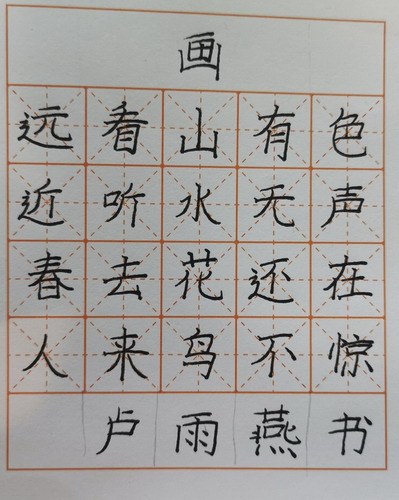 画
远看山有色
近听水无声
春去花还在
人来鸟不惊
卢雨燕书